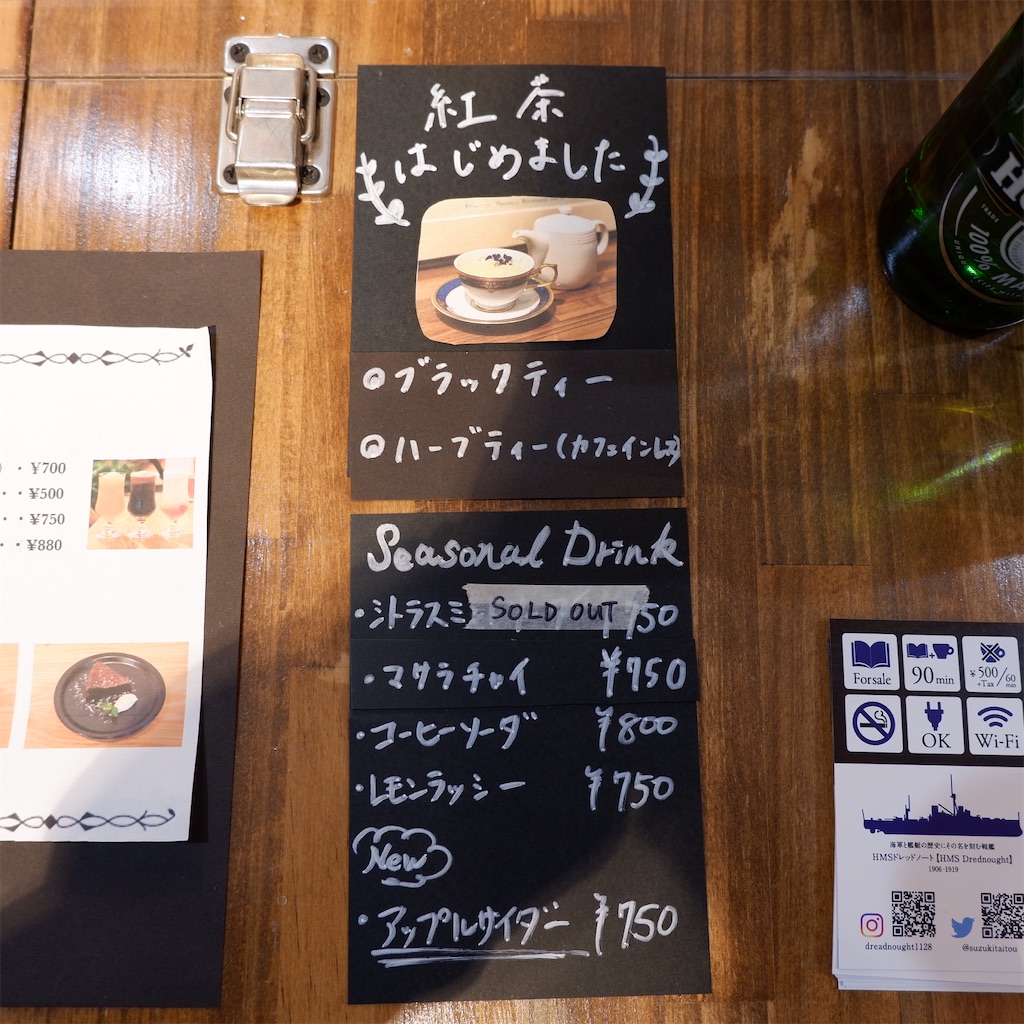 紅茶
はじめました
◎ブラックティー
◎ハーブティー(カフェインレス)
Seasonal Drink
・シトラスミ SOLD OUT ¥750
・マサラチャイ ¥750
・コーヒーソーダ ¥800
・レモンラッシー ¥750
New
・アップルサイダー ¥750
・¥700
・・¥500
・・¥750
・・¥880
100% MA
Forsale
90min
¥500/60min
+Tax
OK
Wi-Fi
海軍と艦艇の歴史にその名を刻む戦艦
HMSドレッドノート【HMS Drednought】
1906-1919
dreadnought1128
@suzukitaitou